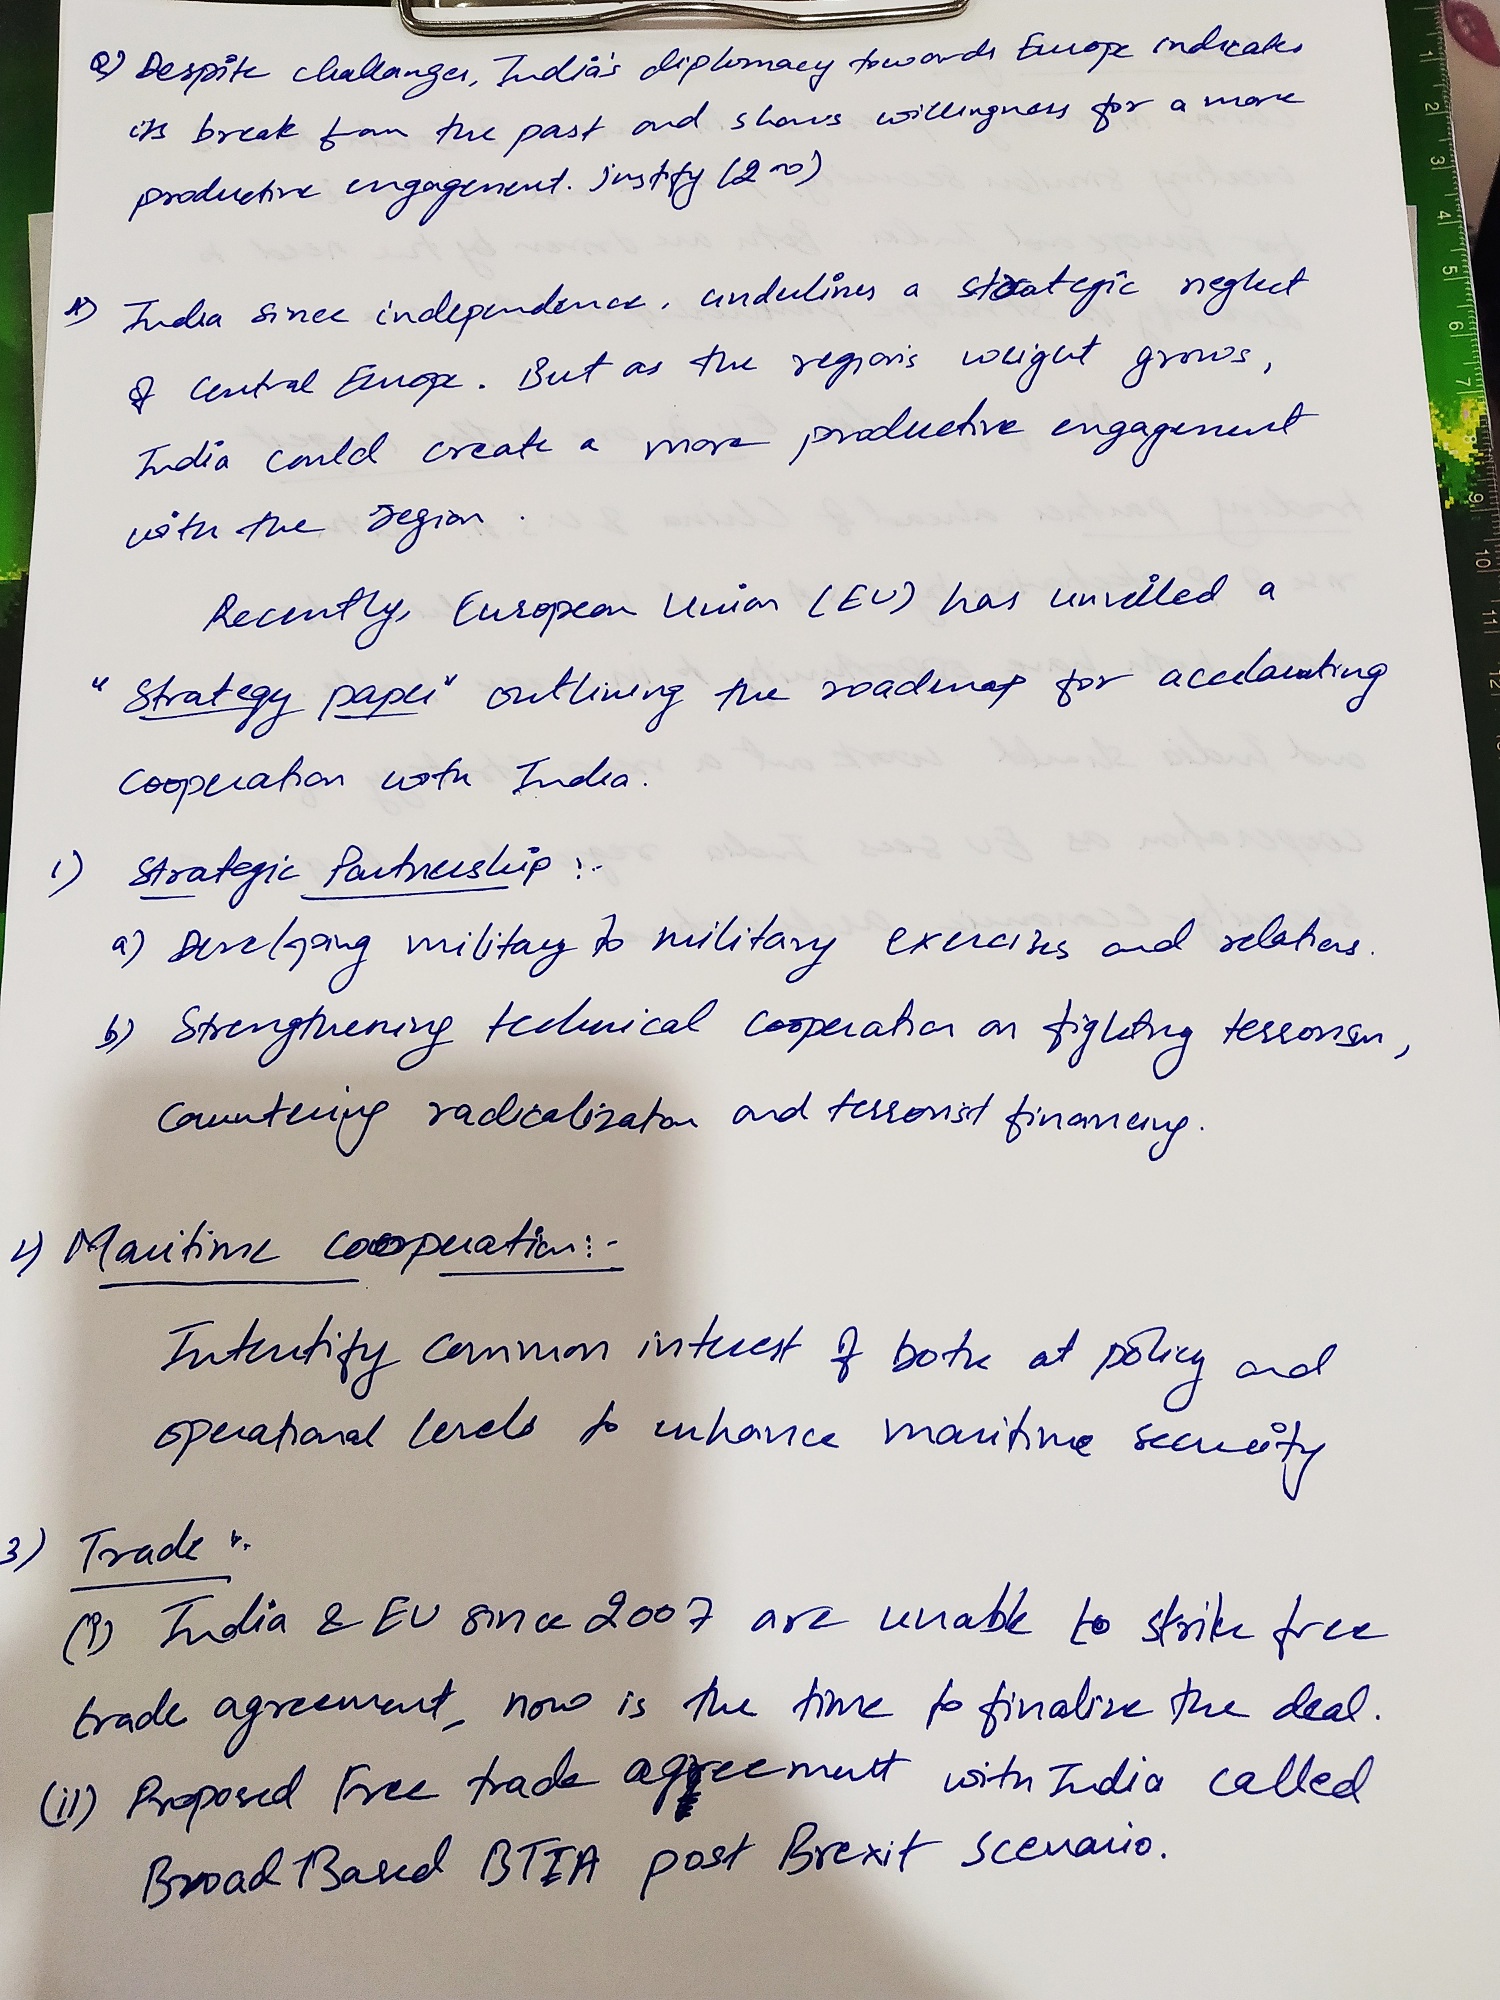 Q) Despite challanges, India's diplomacy towards Europe indicates
its break from the past and shows willingness for a more
productive engagement. Justify (200)
A) India since independence, underlines a strategic neglect
of Central Europe. But as the region's weight grows,
India could create a more productive engagement
with the region.
Recently, European Union (EU) has unveiled a
"Strategy paper" outlining the roadmap for accelarating
cooperation with India.
1) Strategic Partnership :-
a) Developing military to military exercises and relations.
b) Strengthening technical cooperation on fighting terrorism,
countering radicalization and terrorist financing.
2) Maritime cooperation :-
Intentify common interest of both at policy and
operational levels to enhance maritime security
3) Trade :-
(i) India & EU since 2007 are unable to strike free
trade agreement, now is the time to finalize the deal.
(ii) Proposed Free trade agreement with India called
Broad Based BTIA post Brexit scenario.